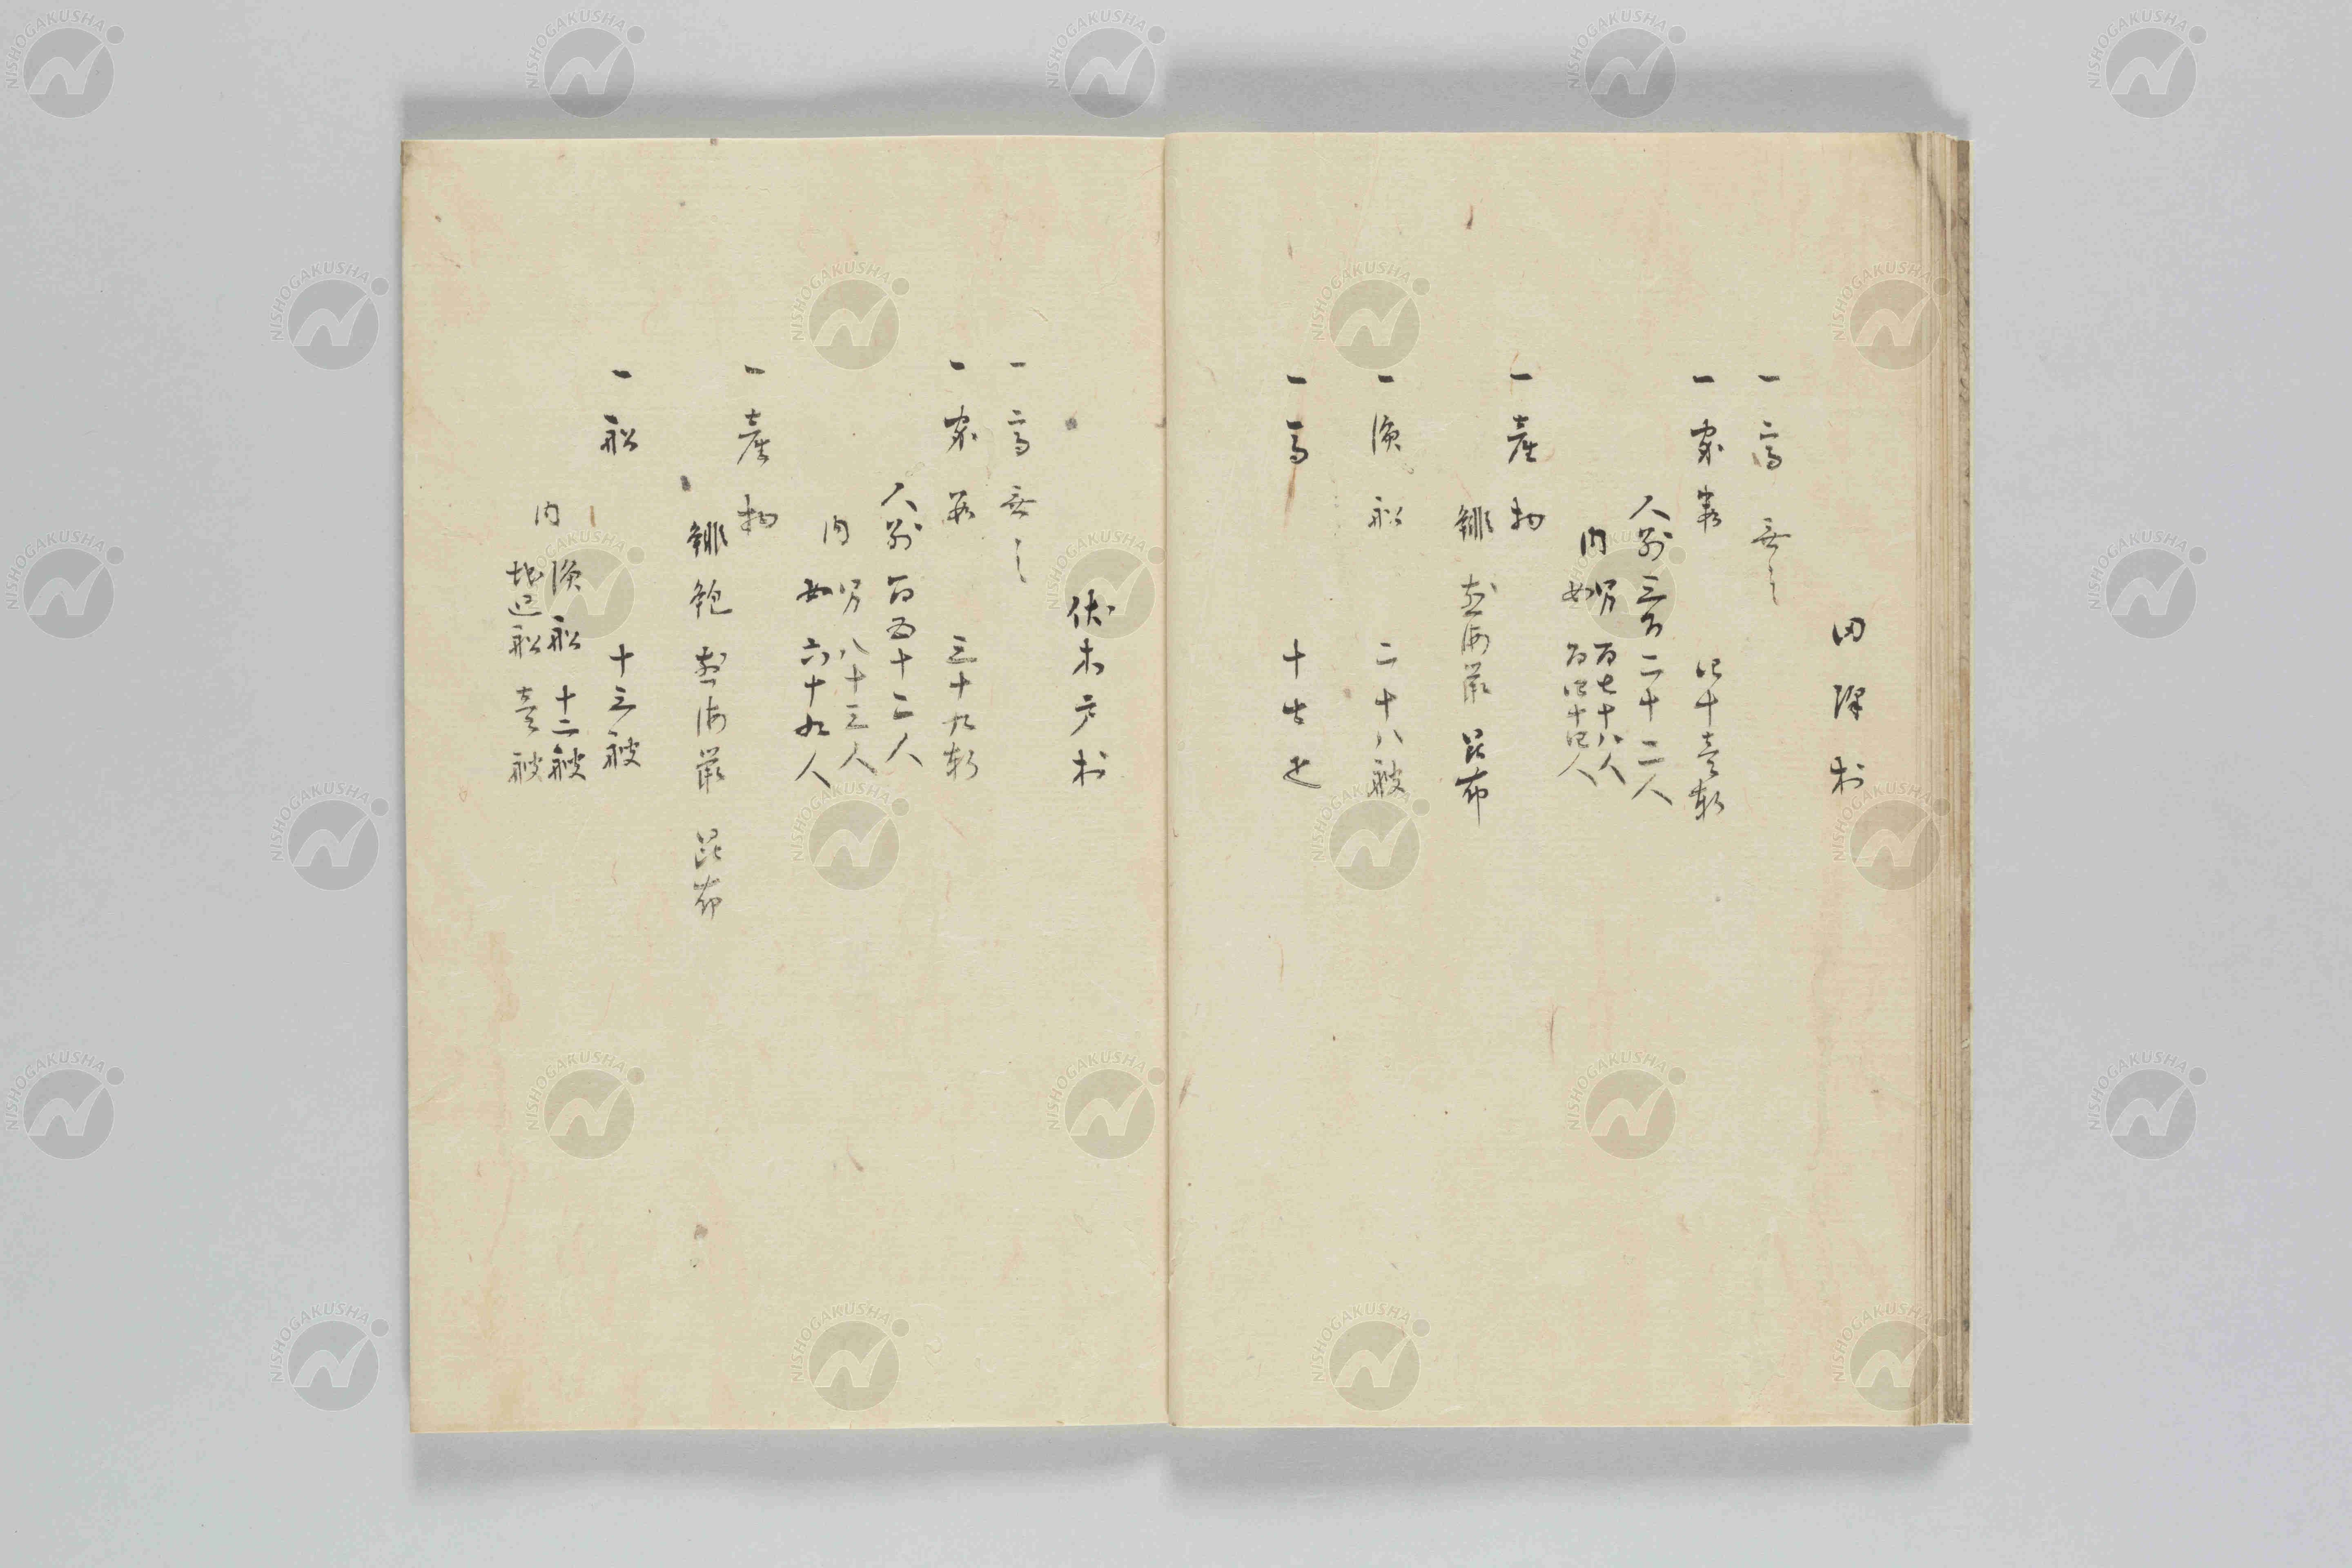 田澤村
一高無之
一家数 四十壱軒
人別三百二十二人
内 男百七十八人
女百四十四人
一産物
鯡 煎海鼠 昆布
一漁船 二十八艘
一馬 十七疋
伏木戸村
一高無之
一家数 三十九軒
人別百五十二人
内 男八十三人
女六十九人
一産物
鯡 鮑 煎海鼠 昆布
一船 十三艘
内 漁船 十二艘
地廻船 壱艘
NISHOGAKUSHA